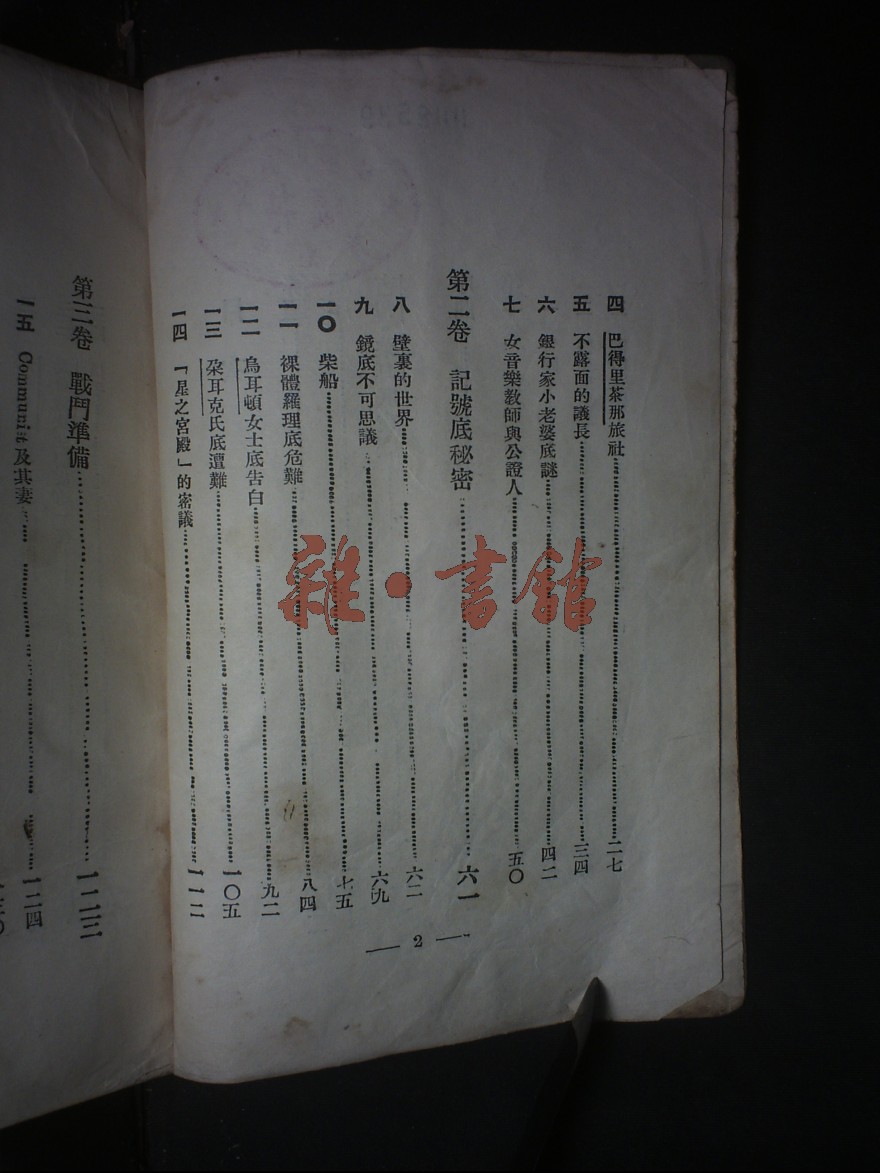 四 巴得里茶那旅社 二七
五 不露面的議長 三四
六 銀行家小老婆底謎 四二
七 女音樂教師與公證人 五〇
第二卷 記號底秘密 六一
八 壁裏的世界 六二
九 鏡底不可思議 六九
一〇 柴船 七五
一一 裸體羅理底危難 八四
一二 烏耳頓女士底告白 九二
一三 朶耳克氏底遭難 一〇五
一四 「星之宮殿」的密議 一一二
— 2 —
第三卷 戰鬥準備 一二三
一五 Communist及其妻 一二四
雜·書館